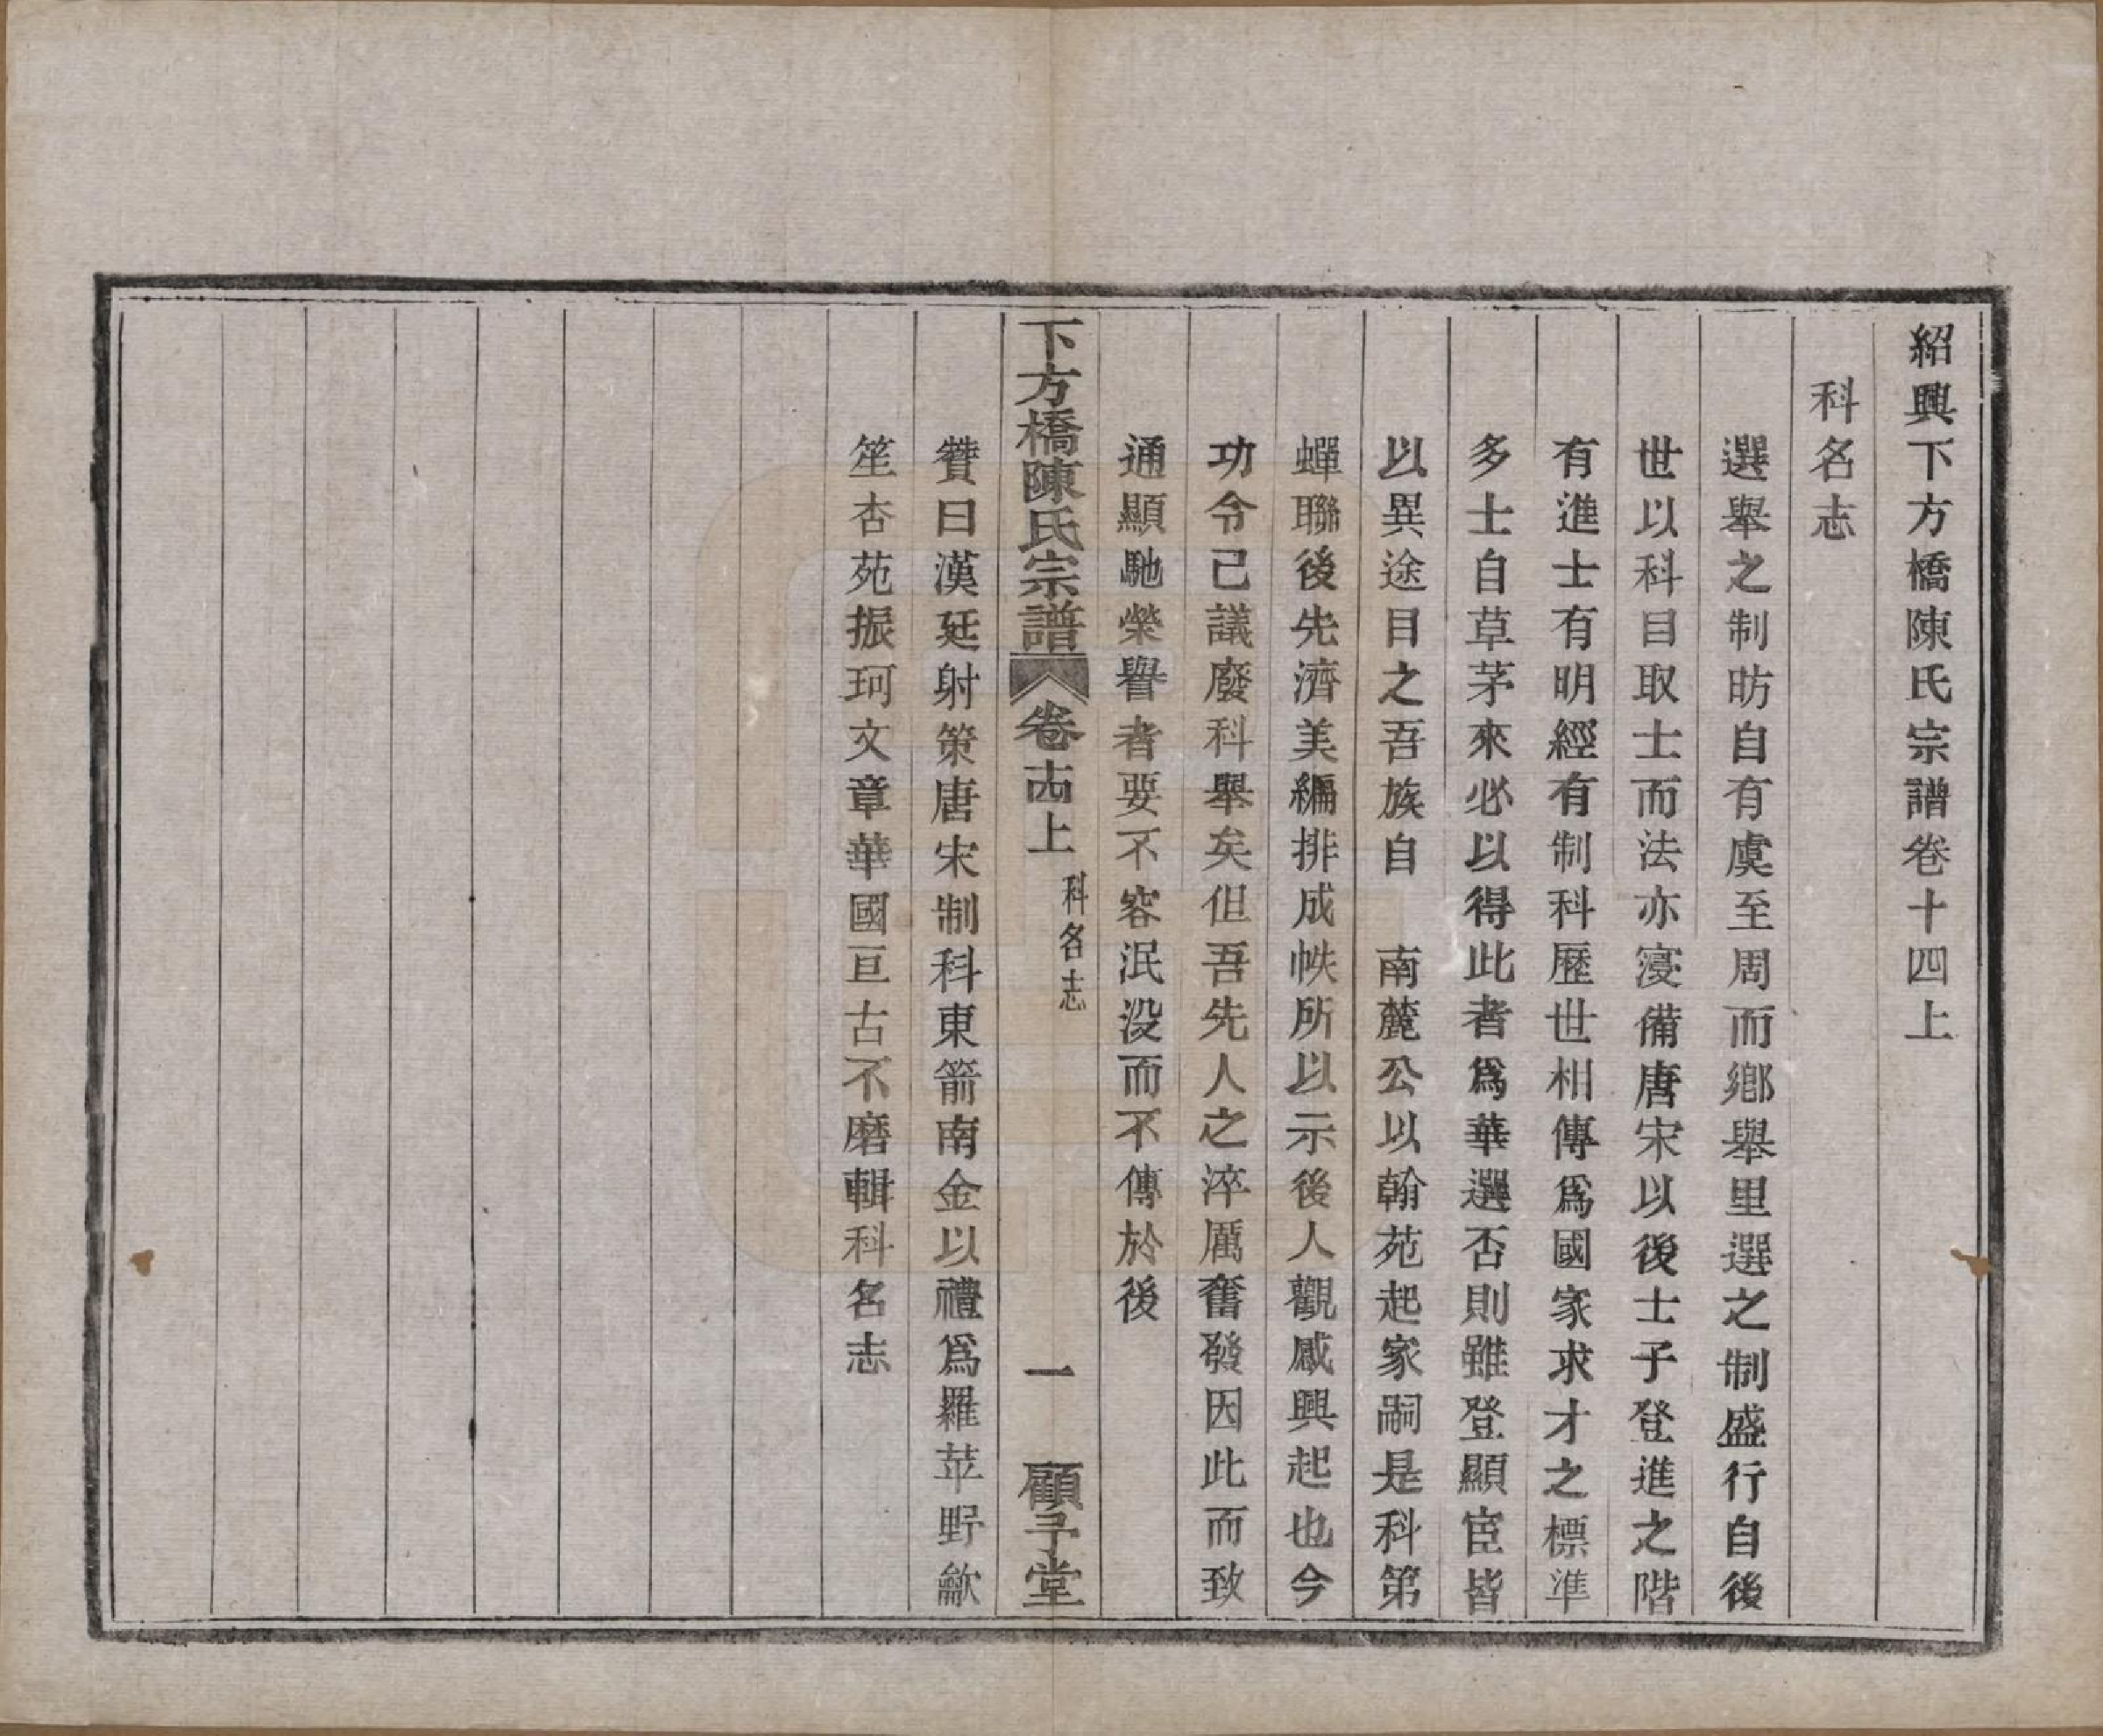 紹興下方橋陳氏宗譜卷十四上
科名志
選舉之制昉自有虞至周而鄉舉里選之制盛行自後
世以科目取士而法亦寖備唐宋以後士子登進之階
有進士有明經有制科歷世相傳爲國家求才之標準
多士自草茅來必以得此者爲華選否則雖登顯宦皆
以異途目之吾族自　南麓公以翰苑起家嗣是科第
蟬聯後先濟美編排成帙所以示後人觀感興起也今
功令已議廢科舉矣但吾先人之淬厲奮發因此而致
通顯馳榮譽者要不容泯沒而不傳於後
下方橋陳氏宗譜 卷十四上 科名志 一 顧予堂
贊曰漢廷射策唐宋制科東箭南金以禮爲羅苹野歈
笙杏苑振珂文章華國亘古不磨輯科名志